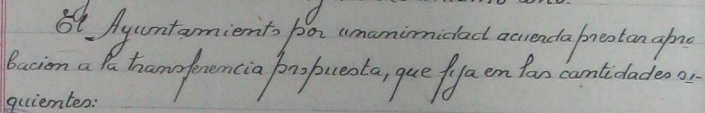 El Ayuntamiento por unanimidad acuerda prestar apro
bacion a la transferencia propuesta, que fija en las cantidades si-
guientes: